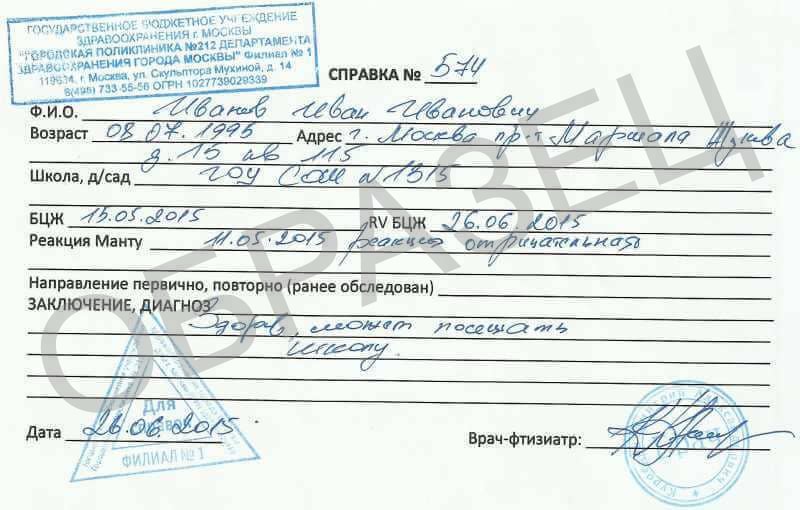 ГОСУДАРСТВЕННОЕ БЮДЖЕТНОЕ УЧРЕЖДЕНИЕ
ЗДРАВООХРАНЕНИЯ г. МОСКВЫ
"ГОРОДСКАЯ ПОЛИКЛИНИКА №212 ДЕПАРТАМЕНТА
ЗДРАВООХРАНЕНИЯ ГОРОДА МОСКВЫ" Филиал № 1
119634, г. Москва, ул. Скульптора Мухиной, д. 14
8(495) 733-55-56 ОГРН 1027739029339
СПРАВКА № 574
Ф.И.О. Иванов Иван Иванович
Возраст 08.07.1995 Адрес г. Москва пр-т Маршала Жукова
д. 15 кв 115
Школа, д/сад ГОУ СОШ N 1315
БЦЖ 15.05.2015 RV БЦЖ 26.06.2015
Реакция Манту 11.05.2015 реакция отрицательная
Направление первично, повторно (ранее обследован)
ЗАКЛЮЧЕНИЕ, ДИАГНОЗ
Здоров, может посещать
школу.
Для
справок
ФИЛИАЛ №1
Дата 26.06.2015 Врач-фтизиатр:
ОБРАЗЕЦ